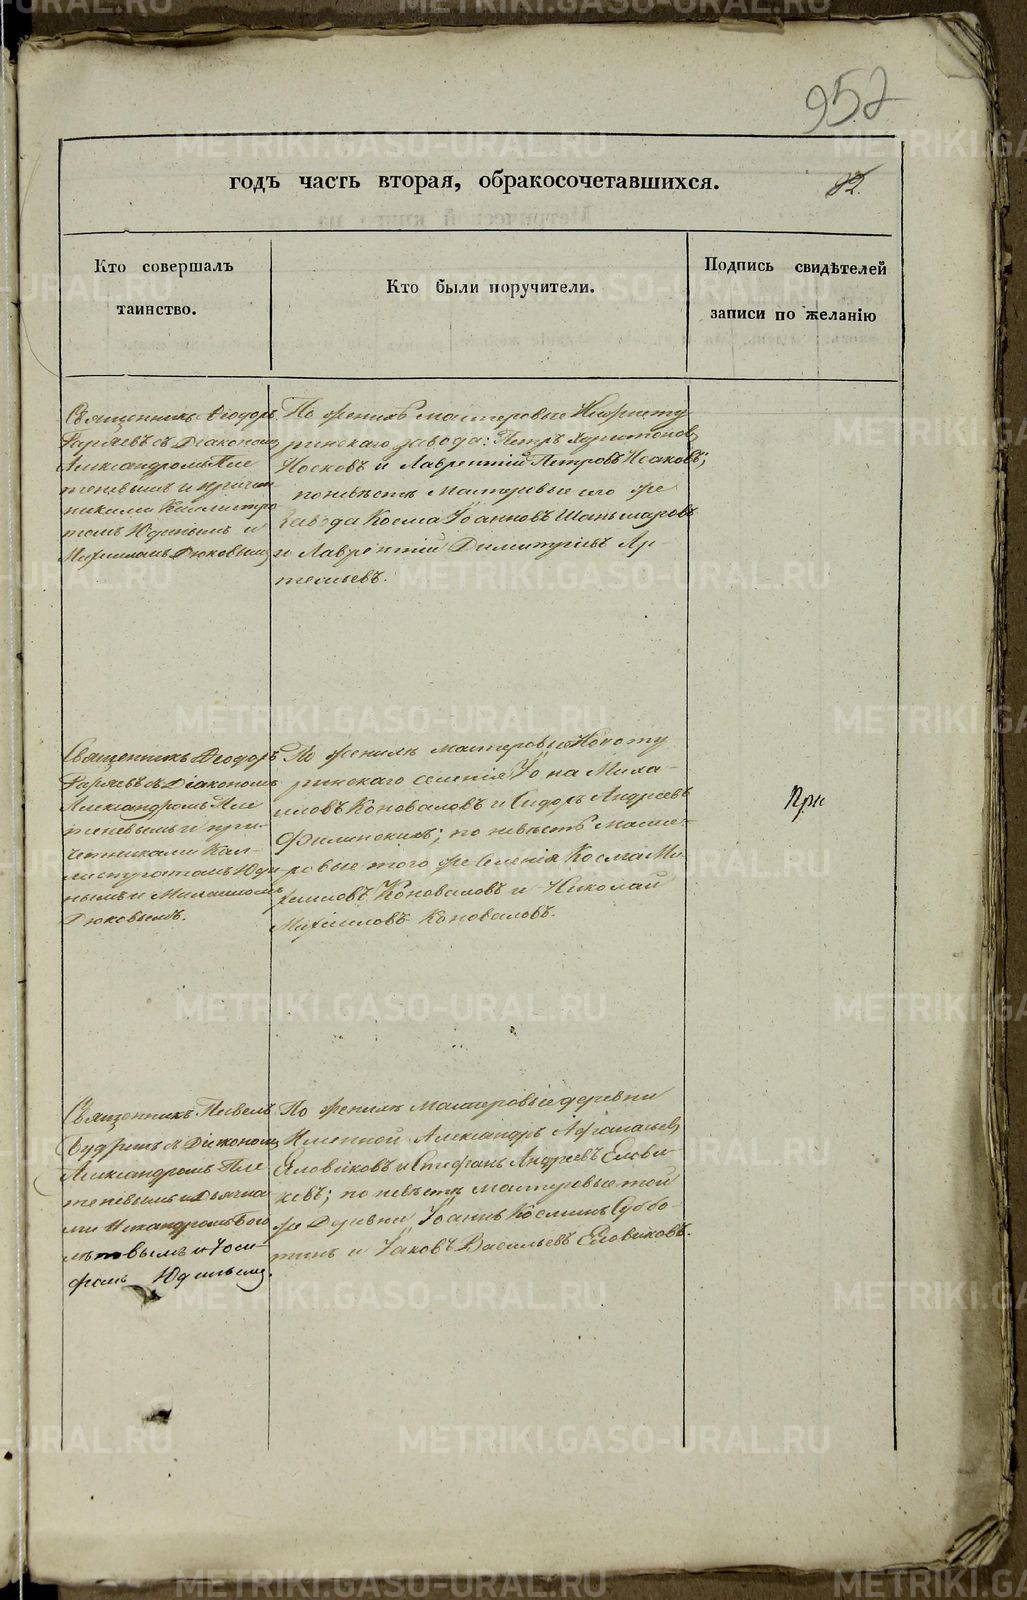 952
годъ часть вторая, обракосочетавшихся.
82.
Кто совершалъ
таинство.
Кто были поручители.
Подпись свидѣтелей
записи по желанію
Священникъ Ѳеодоръ
съ Діакономъ
Александромъ Пле
теневымъ и причет
никами Каллистра
томъ Юдинымъ и
Михаиломъ Дюковымъ
По женихѣ мастеровые Нижнету
ринскаго завода: Петръ Харитоновъ
Носковъ и Лаврентій Петровъ Исаковъ;
по невѣстѣ мастеровые его же
завода Косма Іоанновъ
и Лаврентій Димитріевъ Ар
темьевъ.
Священникъ Ѳеодоръ
съ Діакономъ
Александромъ Пле
теневымъ и при
четниками Кал-
листратомъ Юди
нымъ и Михаиломъ
Дюковымъ.
По женихѣ мастеровые Новоту
ринскаго селенія Іона Миха-
иловъ Коноваловъ и Сидоръ Андреевъ
Филинскихъ; по невѣстѣ масте-
ровые того же селенія Косма Ми
хаиловъ Коноваловъ и Николай
Михаиловъ Коноваловъ.
При
Священникъ Павелъ
съ Діакономъ
Александромъ Пле
теневымъ и Дьячка
ми Никандромъ Бого
молвымъ и Іоси-
фомъ Юдинымъ.
По женихѣ мастеровые деревни
Именной Александръ Афанасьевъ
Еловиковъ и Стефанъ Андреевъ Елови-
ковъ; по невѣстѣ мастеровые той
же Деревни Іоаннъ Косминъ Суббо-
тинъ и Іаковъ Васильевъ Еловиковъ.
METRIKI.GASO-URAL.RU